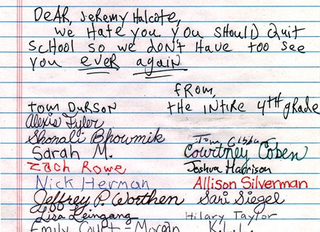 Dear, Jeremy Halcote,
we Hate you you should quit
school so we don't Have too see
you ever again
from,
the intire 4th grade
Tom Durson
Alexis Tyler
Shonali Bhowmik
Tom
Sarah M.
Courtney Coben
Zach Rowe
Joshua Harrison
Nick Herman
Allison Silverman
Jeffrey P. Worthen
Sari Siegel
Lisa Leingang
Hilary Taylor
Emily Court Morgan